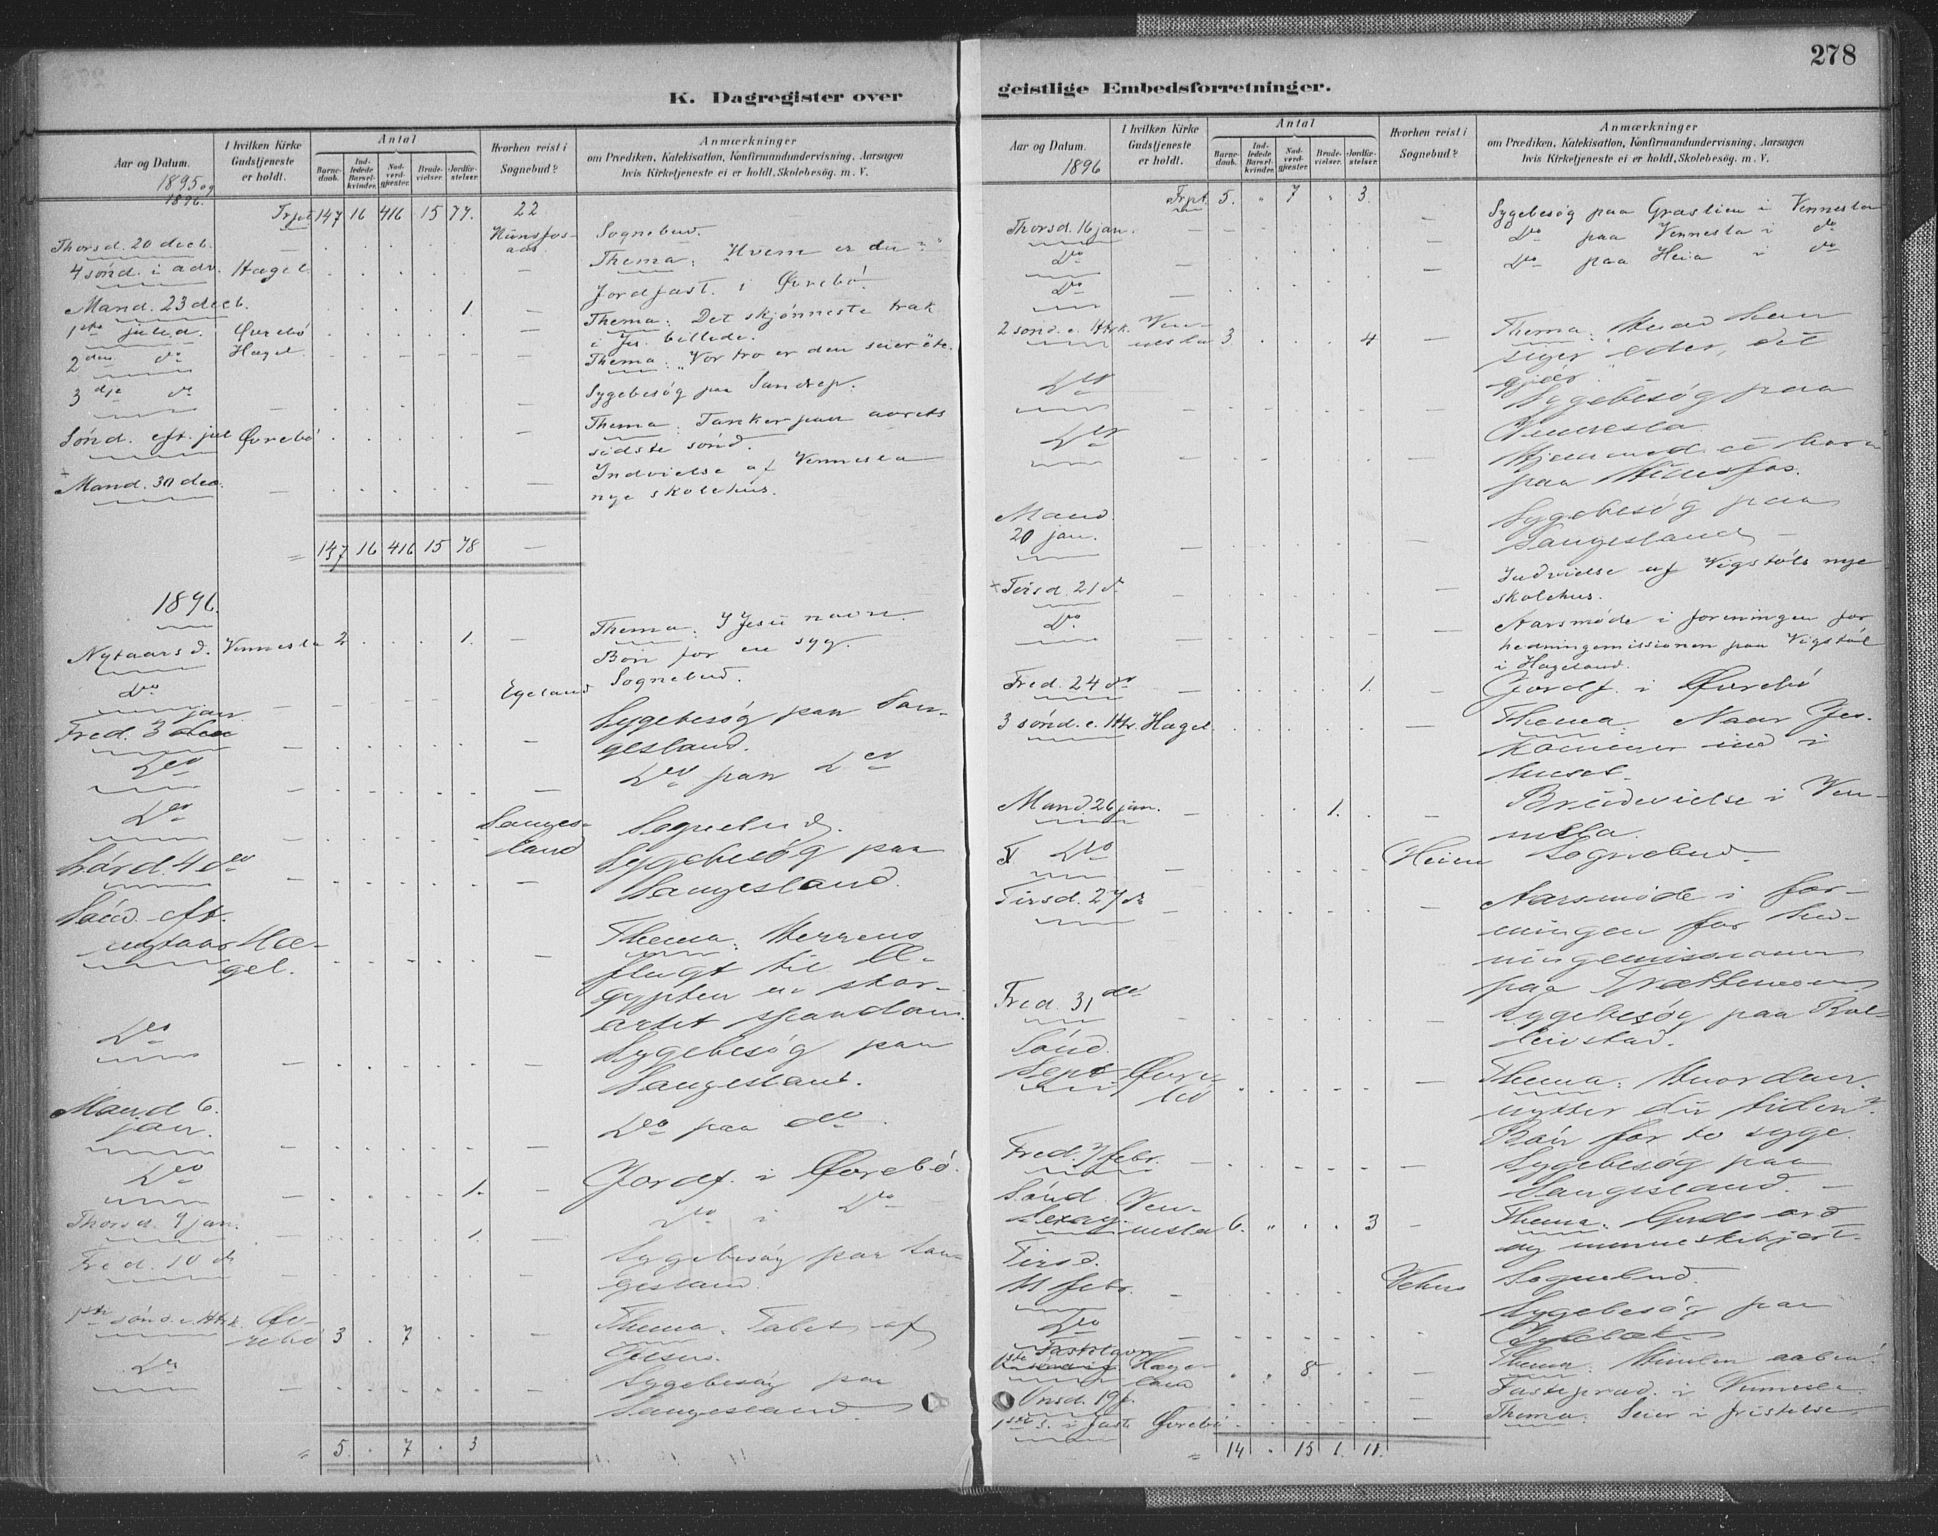 278
K. Dagregister over
geistlige Embedsforretninger.
Aar og Datum.
1895 og
1896.
I hvilken Kirke
Gudstjeneste
er holdt.
Antal
Barne-
daab.
Ind-
ledede
Barsel-
kvinder.
Nad-
verd-
gjester.
Brude-
vielser.
Jordfæ-
stelser.
Hvorhen reist i
Sognebud?
Anmærkninger
om Prædiken, Katekisation, Konfirmandundervisning, Aarsagen
hvis Kirketjeneste ei er holdt, Skolebesøg. m. V.
Trpt. 147 16 416 15 77. 22
Thorsd. 20 decb. Hunsfos- Sognebud.
aas
4 sønd. i adv. Hægel. Thema: Hvem er du?"
Mand. 23 decb. 1. Jordfæst. i Øvrebø.
1ste juled. Øvrebø Thema: Det skjønneste træk
i Js. billede.
2den do Hægel. Thema: "Vor tro er den seier" etc.
3dje do Sygebesøg paa
Sønd. eft. jul Øvrebø Thema: Tanker paa aarets
sidste sønd.
+ Mand. 30 dec. Indvielse af Vennesla
nye skolehus.
= 147 16 416 15 78
1896.
Nytaarsd. Vennesla 2 1. Thema: I Jesu navn.
Bøn for en syg.
Do Egeland Sognebud.
Fred. 3 jan Sygebesøg paa San-
gesland.
Do Do paa Do
Do Sanges- Sognebud.
land
Lørd. 4 do Sygebesøg paa
Sangesland.
Sønd. eft.
nytaar Hæ- Thema: Herrens
gel. flugt til Æ-
gypten en stor-
artet
Do Sygebesøg paa
Sangesland.
Mand 6.
jan. Do paa do
Do 1. Jordf. i Øvrebø.
Thorsd. 9 jan. 1. Do i Do
Fred. 10 do Sygebesøg paa San-
gesland.
1ste sønd. e. Htrk. Øv- Thema: Tabet af
rebø 3 . 7 Jesus.
Do Sygebesøg paa
Sangesland.
= 5. . 7 . 3
Aar og Datum.
1896
I hvilken Kirke
Gudstjeneste
er holdt.
Antal
Barne-
daab.
Ind-
ledede
Barsel-
kvinder.
Nad-
verd-
gjæster.
Brude-
vielser.
Jordfæ-
stelser.
Hvorhen reist i
Sognebud?
Anmærkninger
om Prædiken, Katekisation, Konfirmandundervisning, Aarsagen
hvis Kirketjeneste ei er holdt, Skolebesøg. m. V.
Trpt. 5. " 7 " 3.
Thorsd. 16 jan. Sygebesøg paa Graslien i Vennesla
Do Do paa Vennesla i do
Do Do paa Heia i do
2 sønd. e. Htrk. Ven-
nesla 3 4 Thema: Hvad han
siger eder, det
gjør."
Do Sygebesøg paa
Vennesla
Do Hjemmed. et barn
paa Hunsfos.
Mand.
20 jan. Sygebesøg paa
Sangesland
+ Tirsd. 21 d. Indvielse af Vigstøls nye
skolehus.
Do Aarsmøde i foreningen for
hedningemissionen paa Vigstøl
i Hægeland.
Fred. 24 do 1. Jordf. i Øvrebø
3 sønd. e. Htr. Hægel. Thema: Naar Jes.
kommer ind i
huset.
Mand. 26 jan. 1. Brudevielse i Ven-
nesla.
Do Heien Sognebud.
Tirsd. 27 do Aarsmøde i for-
eningen for hed-
ningemissionen
paa
Fred. 31 do Sygebesøg paa
Sønd.
Sept. Øvre-
bø Thema: Hvordan
nytter du tiden?
Bøn for to syge.
Fred. 7 febr. Sygebesøg paa
Sangesland.
Sønd. Ven-
Sexag. nesla 6. " . . 3 Thema: Guds ord
og menneskehjert.
Tirsd.
11 febr. Vehus Sognebud.
Do Sygebesøg paa
Fastelavn
Hæge-
land . . 8 Thema: Himlen aaben.
Onsd. 19 f. Fastepræd. i Vennesla
1ste s. i faste Øvrebø Thema: Seier i fristelse.
= 14 . 15 1. 11.